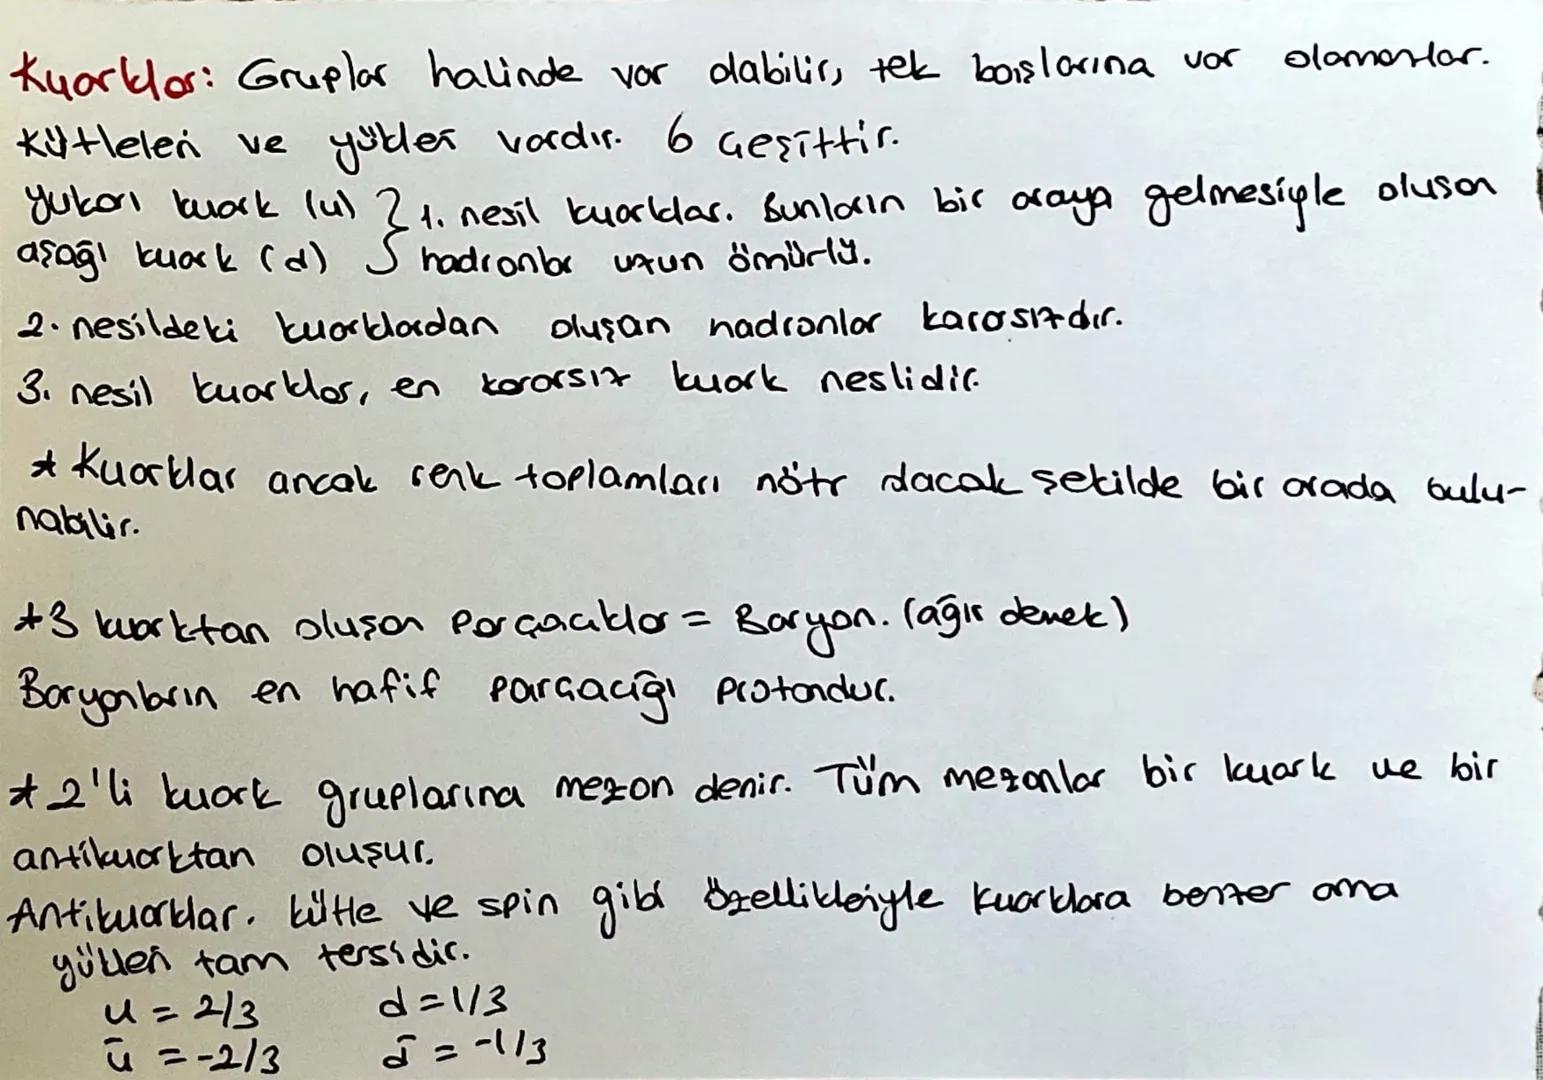 Kuarklar: Gruplar halinde var olabilir, tek başlarına var olamazlar.
Kütleleri ve yükleri vardır. 6 çeşittir.
Yukarı kuark (u) } 1. nesil kuarklar. Bunların bir araya gelmesiyle oluşan
aşağı kuark (d) hadronlar uzun ömürlü.
2. nesildeki kuarklardan oluşan hadronlar kararsızdır.
3. nesil kuarklar, en kararsız kuark neslidir.
* Kuarklar ancak renk toplamları nötr olacak şekilde bir arada bulu-
nabilir.
*3 kuarktan oluşan parçacıklar = Baryon. (ağır demek)
Baryonların en hafif parçacığı protondur.
*2'li kuark gruplarına mezon denir. Tüm mezonlar bir kuark ve bir
antikuarktan oluşur.
Antikuarklar. kütle ve spin gibi özellikleriyle kuarklara benzer ama
yükleri tam tersidir.
u = 2/3 d = 1/3
ū = -2/3 d̄ = -1/3